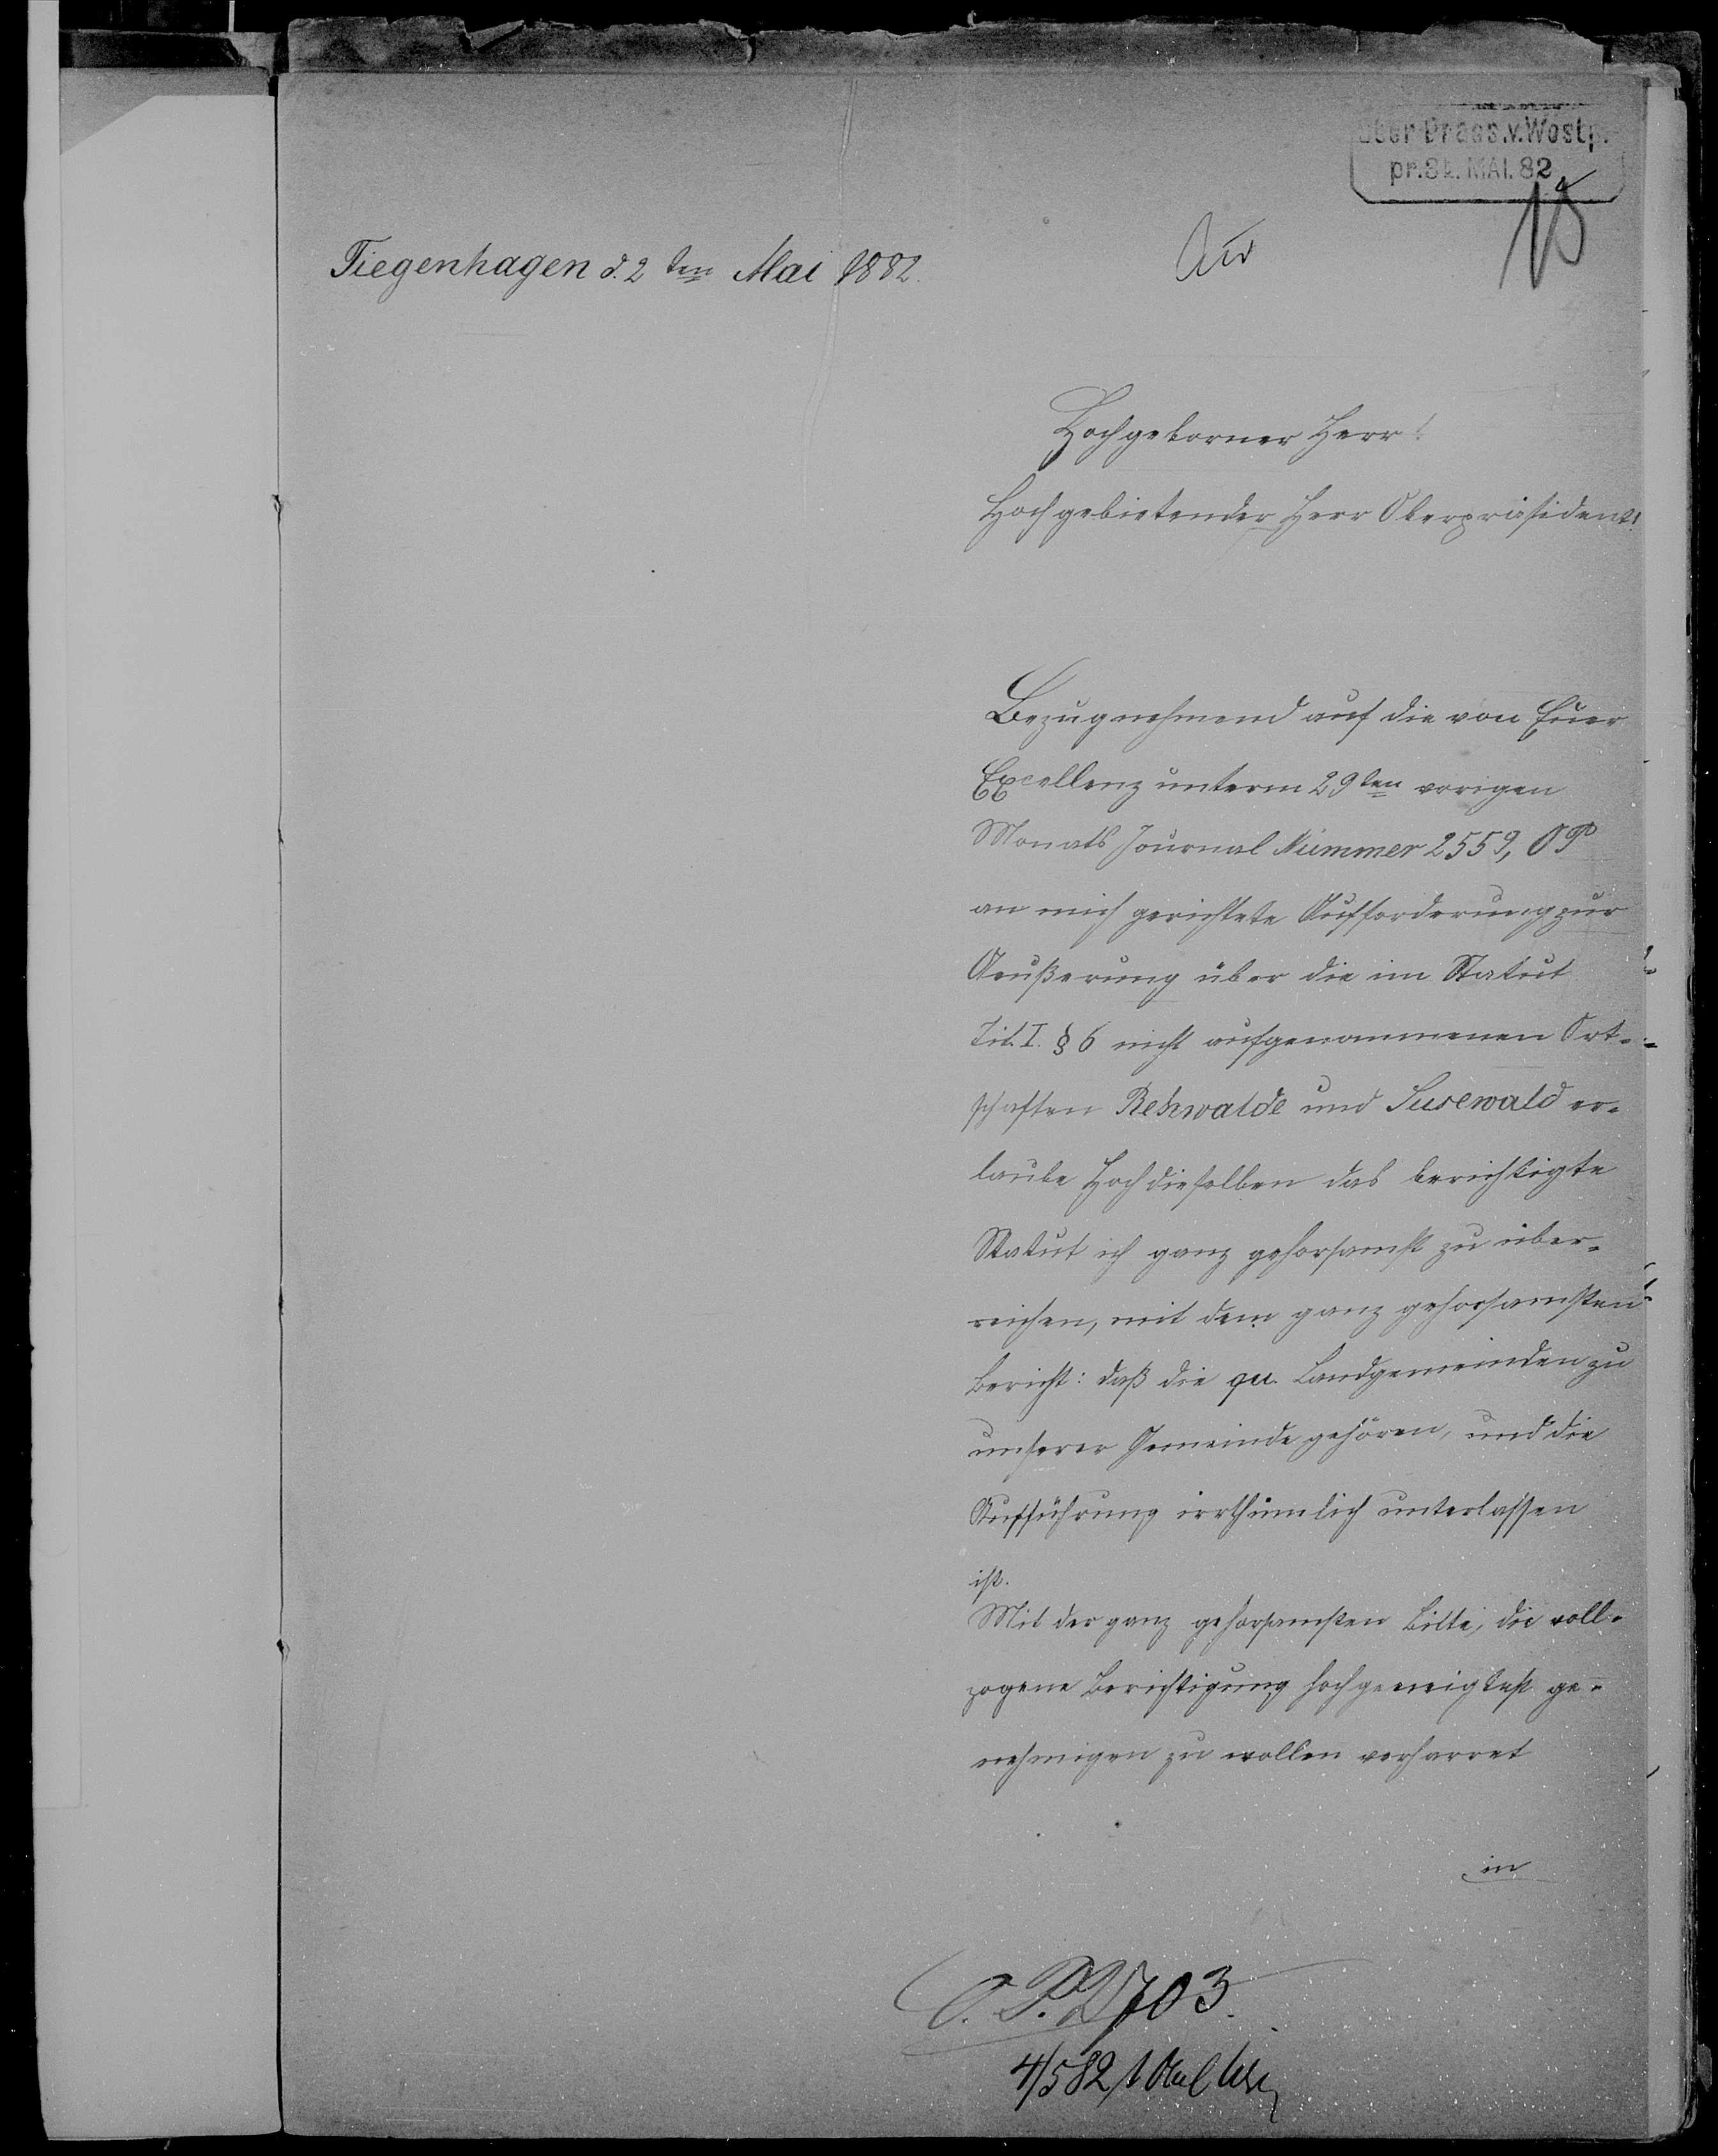 Ober Praes. v. Westp.
pr. 3. MAI. 82
18
Tiegenhagen d. 2 ten Mai 1882.
Hochgeborner Herr!
Hochgebietender Herr Oberpräsident!
Bezugnehmend auf die von Euer
Excellenz unterm 29ten vorigen
Monats Journal Nummer 2559, OP
an mich gerichtete Aufforderung zur
Aeußerung über die im Statut
Tit. I. § 6 nicht aufgenommenen Ort-
schaften Rehwalde und Susewald er-
laube Hochdieselben das berichtigte
Statut ich ganz gehorsamst zu über-
reichen, mit dem ganz gehorsamsten
Bericht: daß die qu. Landgemeinden zu
unserer Gemeinde gehören, und die
Aufführung irrthümlich unterlassen
ist.
Mit der ganz gehorsamsten Bitte, die voll-
zogene Berichtigung hochgeneigtest ge-
nehmigen zu wollen verharret
in
O. P. 2703.
4/5 82